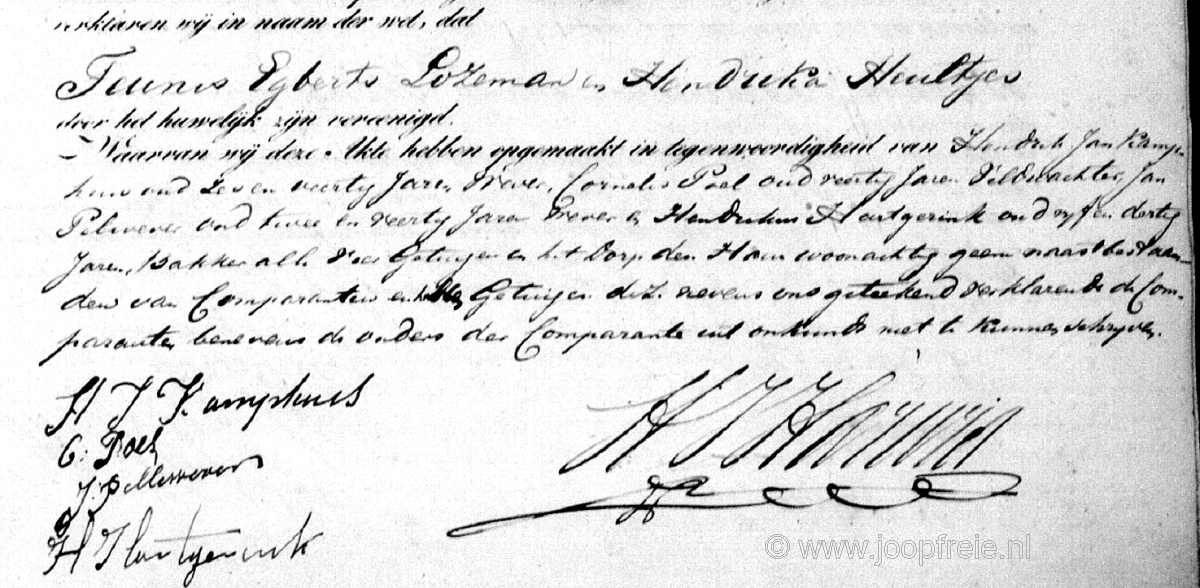 verklaren wij in naam der wet, dat
Teunis Egberts Lozeman en Hendrika Heultjes
door het huwelijk zijn vereenigd.
Waarvan wij deze Akte hebben opgemaakt in tegenwoordigheid van Hendrik Jan Kamp
huis oud zes en veertig Jaren Wever, Cornelis Poel oud veertig Jaren Veldwachter, Jan
Pelwever oud twee en veertig Jaren Wever en Hendrikus Hartgerink oud vyf en dertig
Jaren, Bakker alle vier Getuigen in het Dorp den Ham woonachtig geene naastbestaan-
den van Comparanten en Getuigen deze nevens ons geteekend verklarende de Com-
paranten benevens de ouders der Comparante uit onkunde niet te kunnen schryven.
H J Kamphuis
C. Poel
J. Pellewever
H Hartgerink
© www.joopfreie.nl